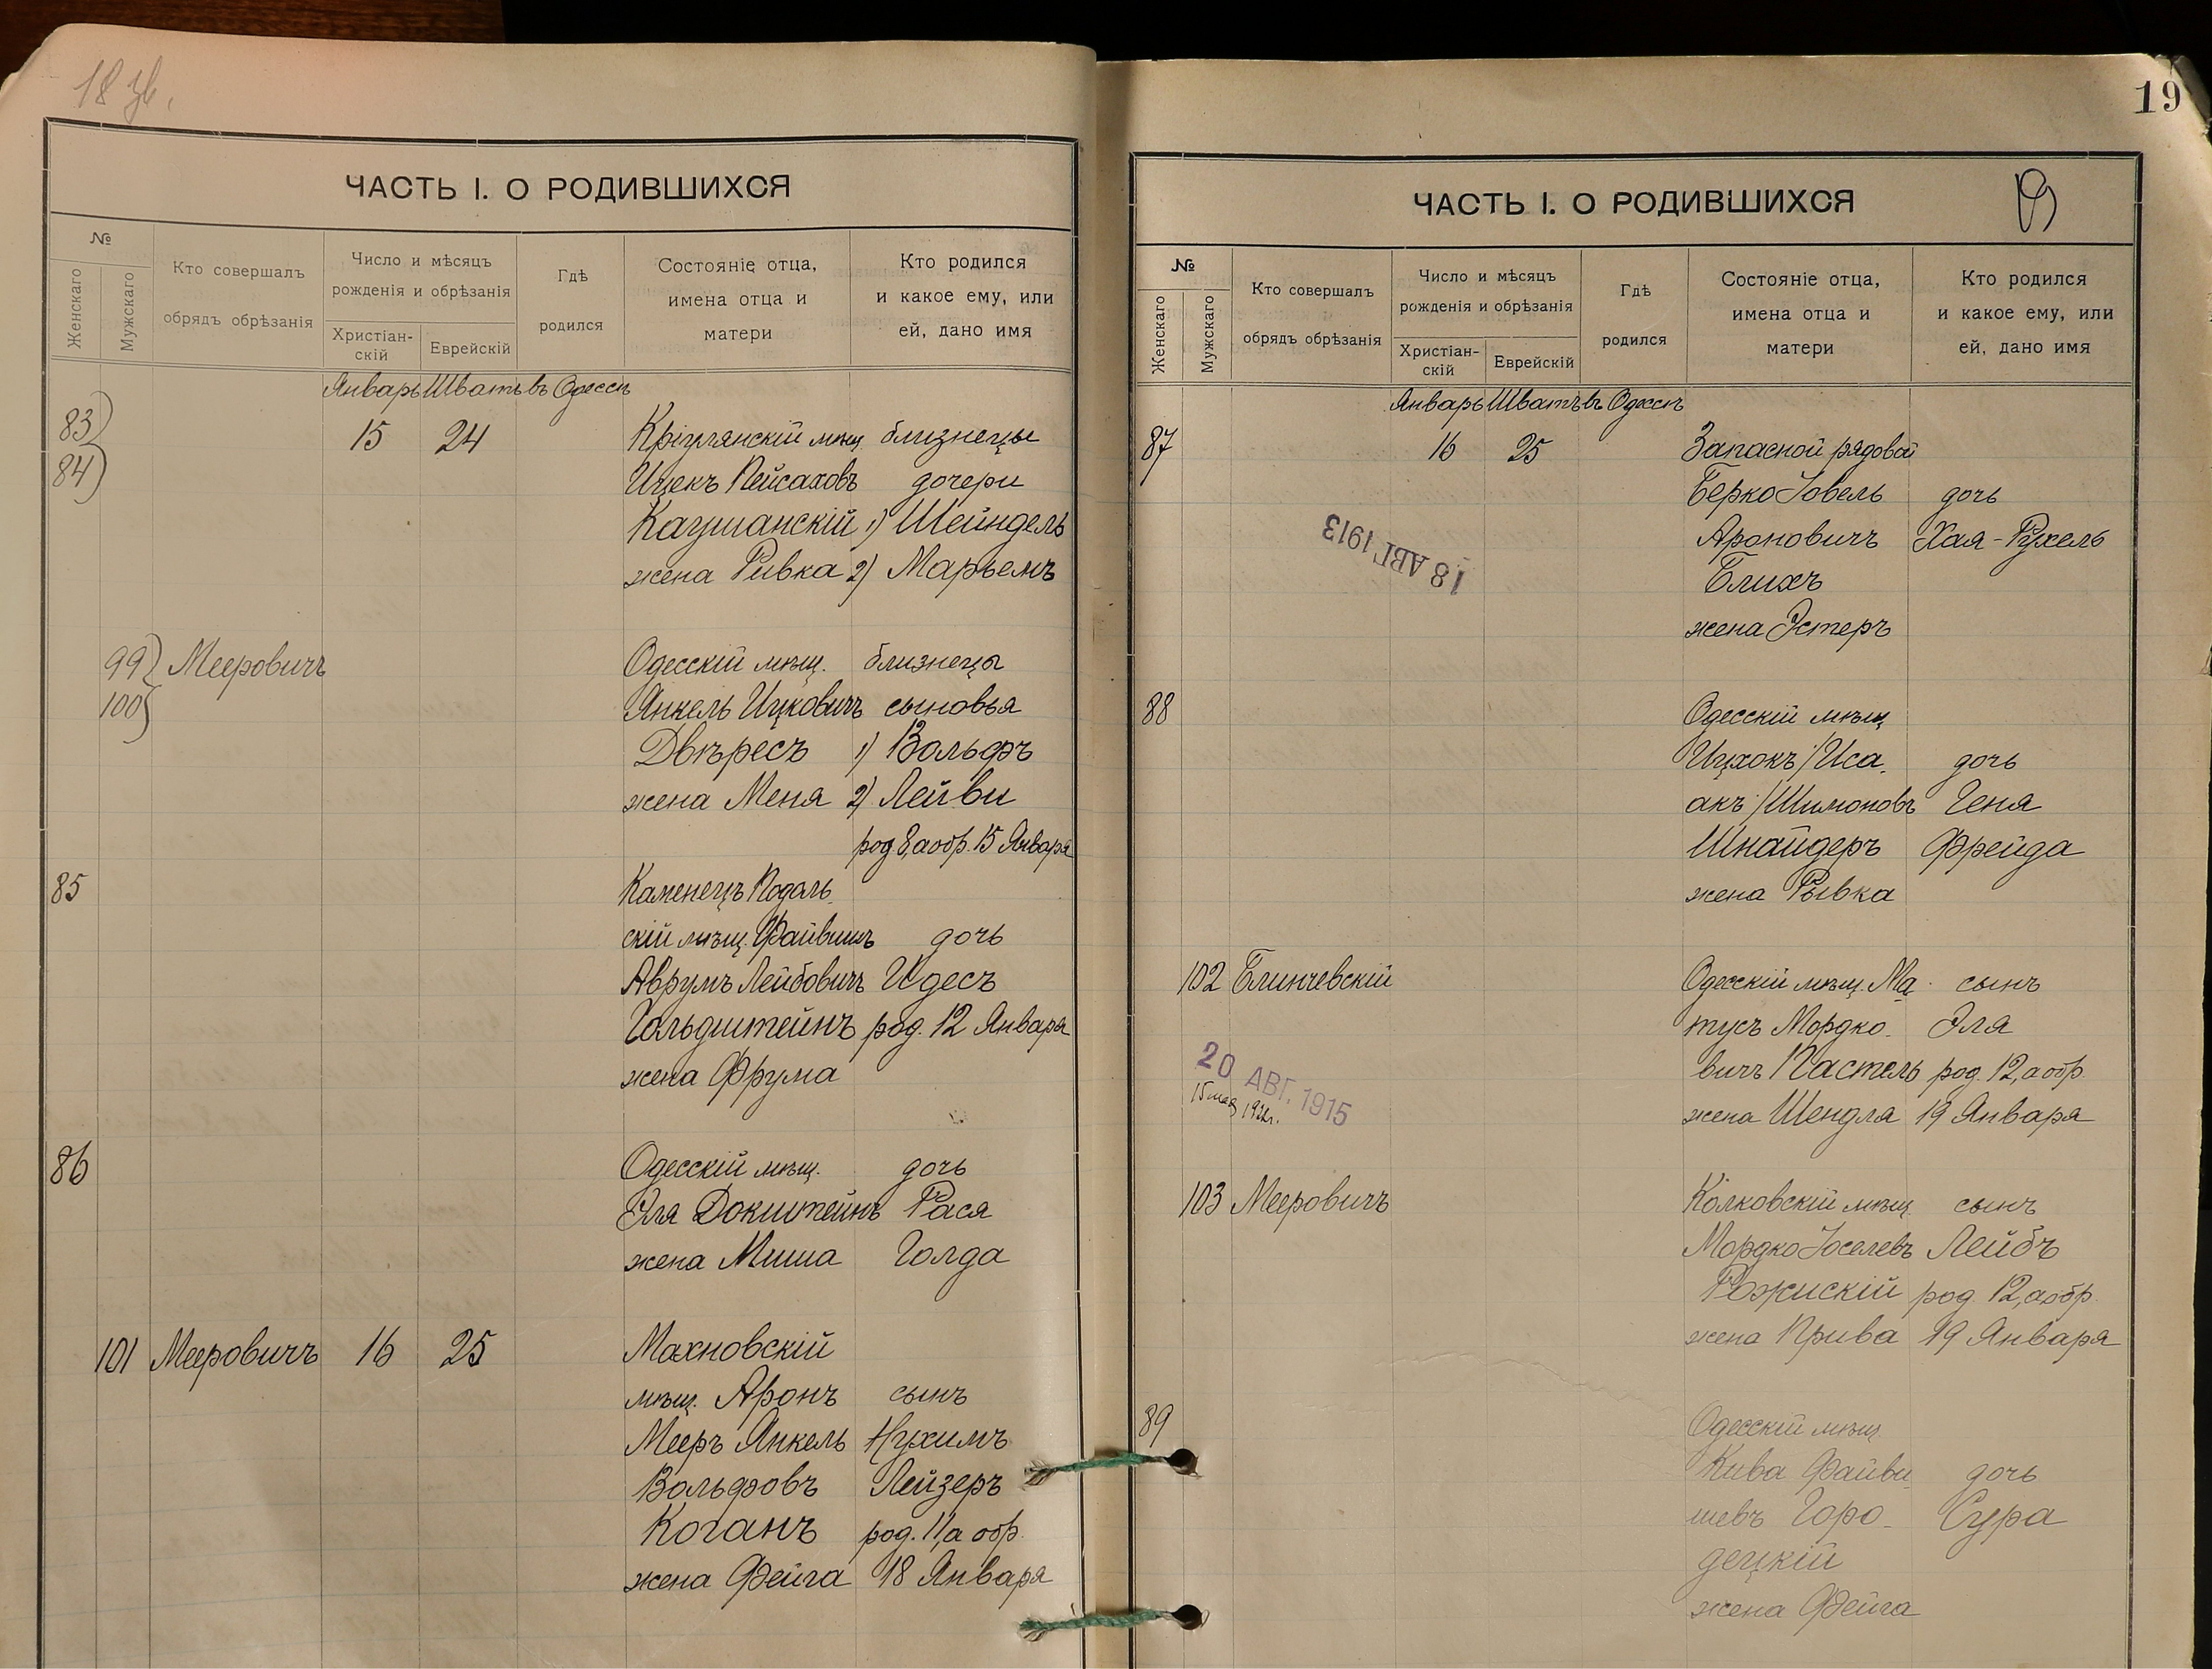 18 зв.
ЧАСТЬ I. О РОДИВШИХСЯ
№
Женскаго
Мужскаго
Кто совершалъ
обрядъ обрѣзанія
Число и мѣсяцъ
рожденія и обрѣзанія
Христіан-
скій
Еврейскій
Гдѣ
родился
Состояніе отца,
имена отца и
матери
Кто родился
и какое ему, или
ей, дано имя
Январь Шватъ въ Одессѣ
83) 15 24 мѣщ. близнецы
84) Ицекъ Пейсаховъ дочери
Каушанскій 1) Шейндель
жена Ривка 2) Марьемъ
99} Мееровичъ Одесскій мѣщ. близнецы
100} Янкель Ицковичъ сыновья
Двѣресъ 1) Вольфъ
жена Меня 2) Лейви
род. 8, а обр. 15 Января
85 Каменецъ Подоль-
скій мѣщ. Файвишъ дочь
Аврумъ Лейбовичъ Идесъ
Гольдштейнъ род. 12 Января
жена Фрума
86 Одесскій мѣщ. дочь
Эля Докштейнъ Рася
жена Миша Голда
101 Мееровичъ 16 25 Махновскій
мѣщ. Аронъ сынъ
Мееръ Янкель Нухимъ
Вольфовъ Лейзеръ
Коганъ род. 11, а обр.
жена Фейга 18 Января
19
19
ЧАСТЬ I. О РОДИВШИХСЯ
№
Женскаго
Мужскаго
Кто совершалъ
обрядъ обрѣзанія
Число и мѣсяцъ
рожденія и обрѣзанія
Христіан-
скій
Еврейскій
Гдѣ
родился
Состояніе отца,
имена отца и
матери
Кто родился
и какое ему, или
ей, дано имя
Январь Шватъ въ Одессѣ
87 16 25 Запасной рядовой
Берко Іовель дочь
Ароновичъ Хая-Рухель
18 АВГ 1913
Блихъ
жена Эстеръ
88 Одесскій мѣщ
Ицхокъ /Иса- дочь
акъ/ Шимоновъ Геня
Шнайдеръ Фрейда
жена Рывка
102 Блинчевскій Одесскій мѣщ. Ма- сынъ
тусъ Мордко- Эля
вичъ Пастель род. 12, а обр.
20 АВГ. 1915
жена Шендля 19 Января
103 Мееровичъ Колковскій мѣщ. сынъ
Мордко Іоселевъ Лейбъ
Рожискій род. 12, а обр.
жена Прива 19 Января
89 Одесскій мѣщ.
Кива Файви- дочь
шевъ Горо- Сура
децкій
жена Фейга